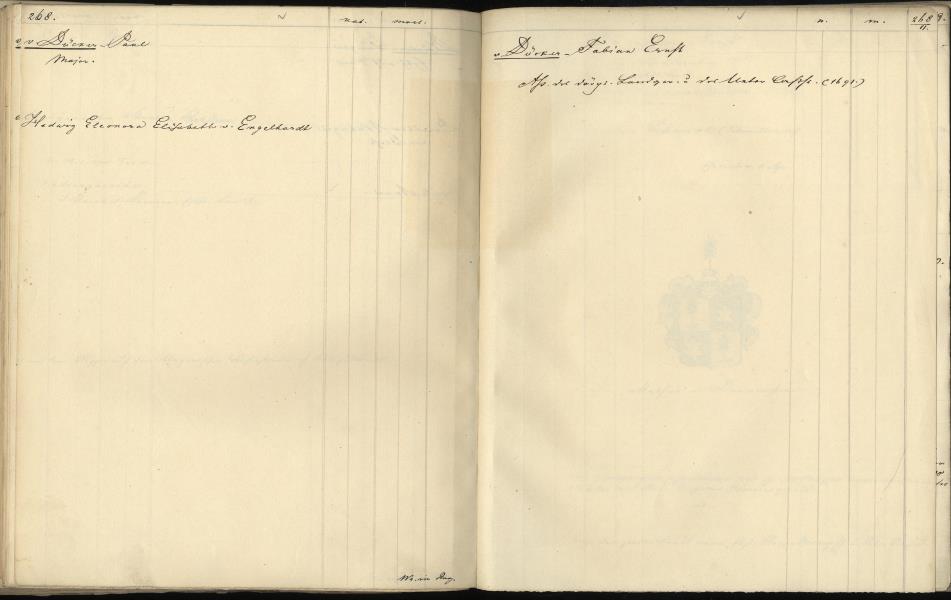 268.
nat.
mort.
v. Dücker Paul
Major.
Hedwig Eleonora Elisabeth v. Engelhardt
n.
m.
268
II.
v. Dücker Fabian Ernst
Ass. des dörpt. Landger. u. des Unter (1691.)